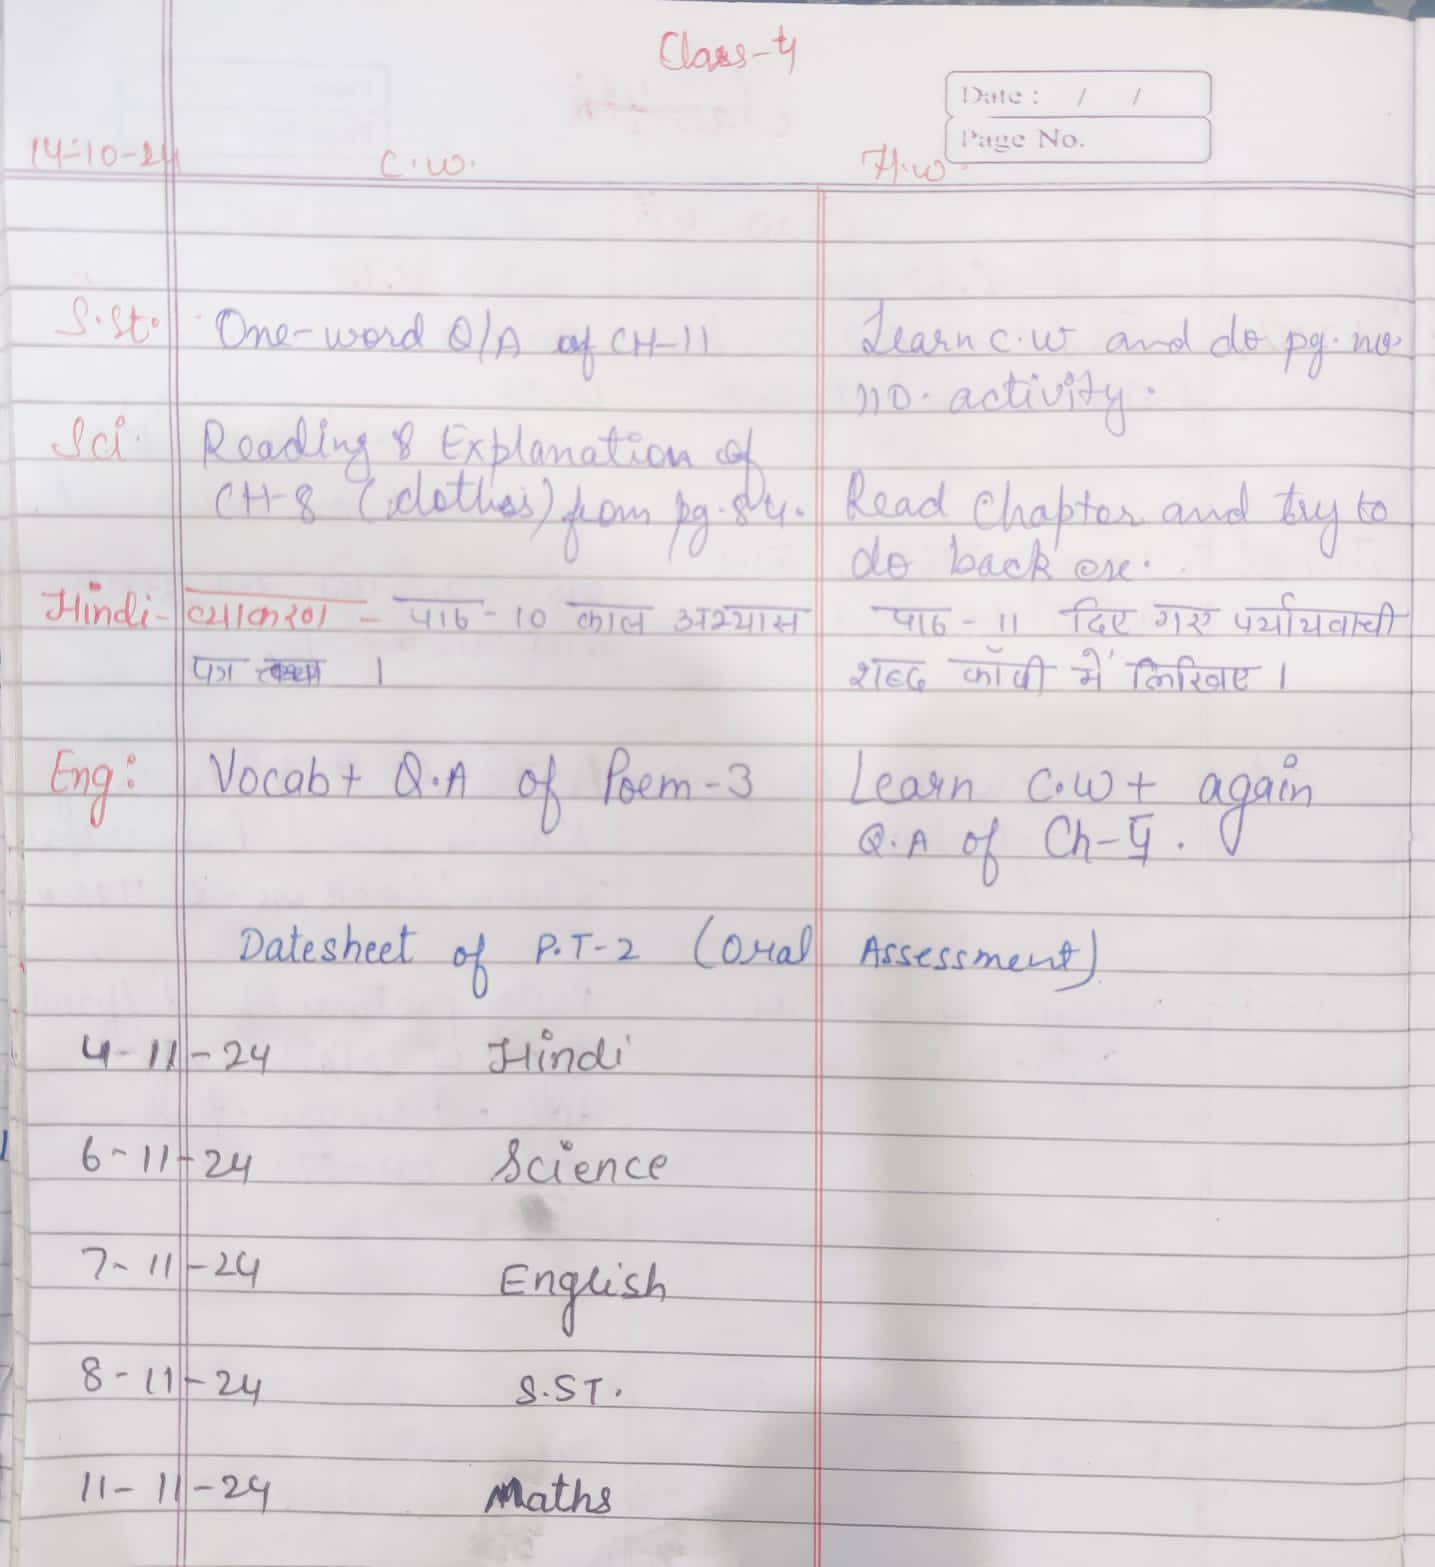 Class-4
Date : / /
Page No.
14-10-24 C.W. H.W
S.St. One-word Q/A of CH-11 Learn C.W and do pg. no.
110. activity.
Sci. Reading & Explanation of
CH-8 (clothes) from pg. 84. Read Chapter and try to
do back ex.
Hindi- व्याकरण - पाठ - 10 काल अभ्यास पाठ - 11 दिए गए पर्यायवाची
पत्र । शब्द कॉपी में लिखिए ।
Eng: Vocab + Q.A of Poem-3 Learn C.W + again
Q.A of Ch-4.
Datesheet of P.T-2 (Oral Assessment)
4-11-24 Hindi
6-11-24 Science
7-11-24 English
8-11-24 S.ST.
11-11-24 Maths